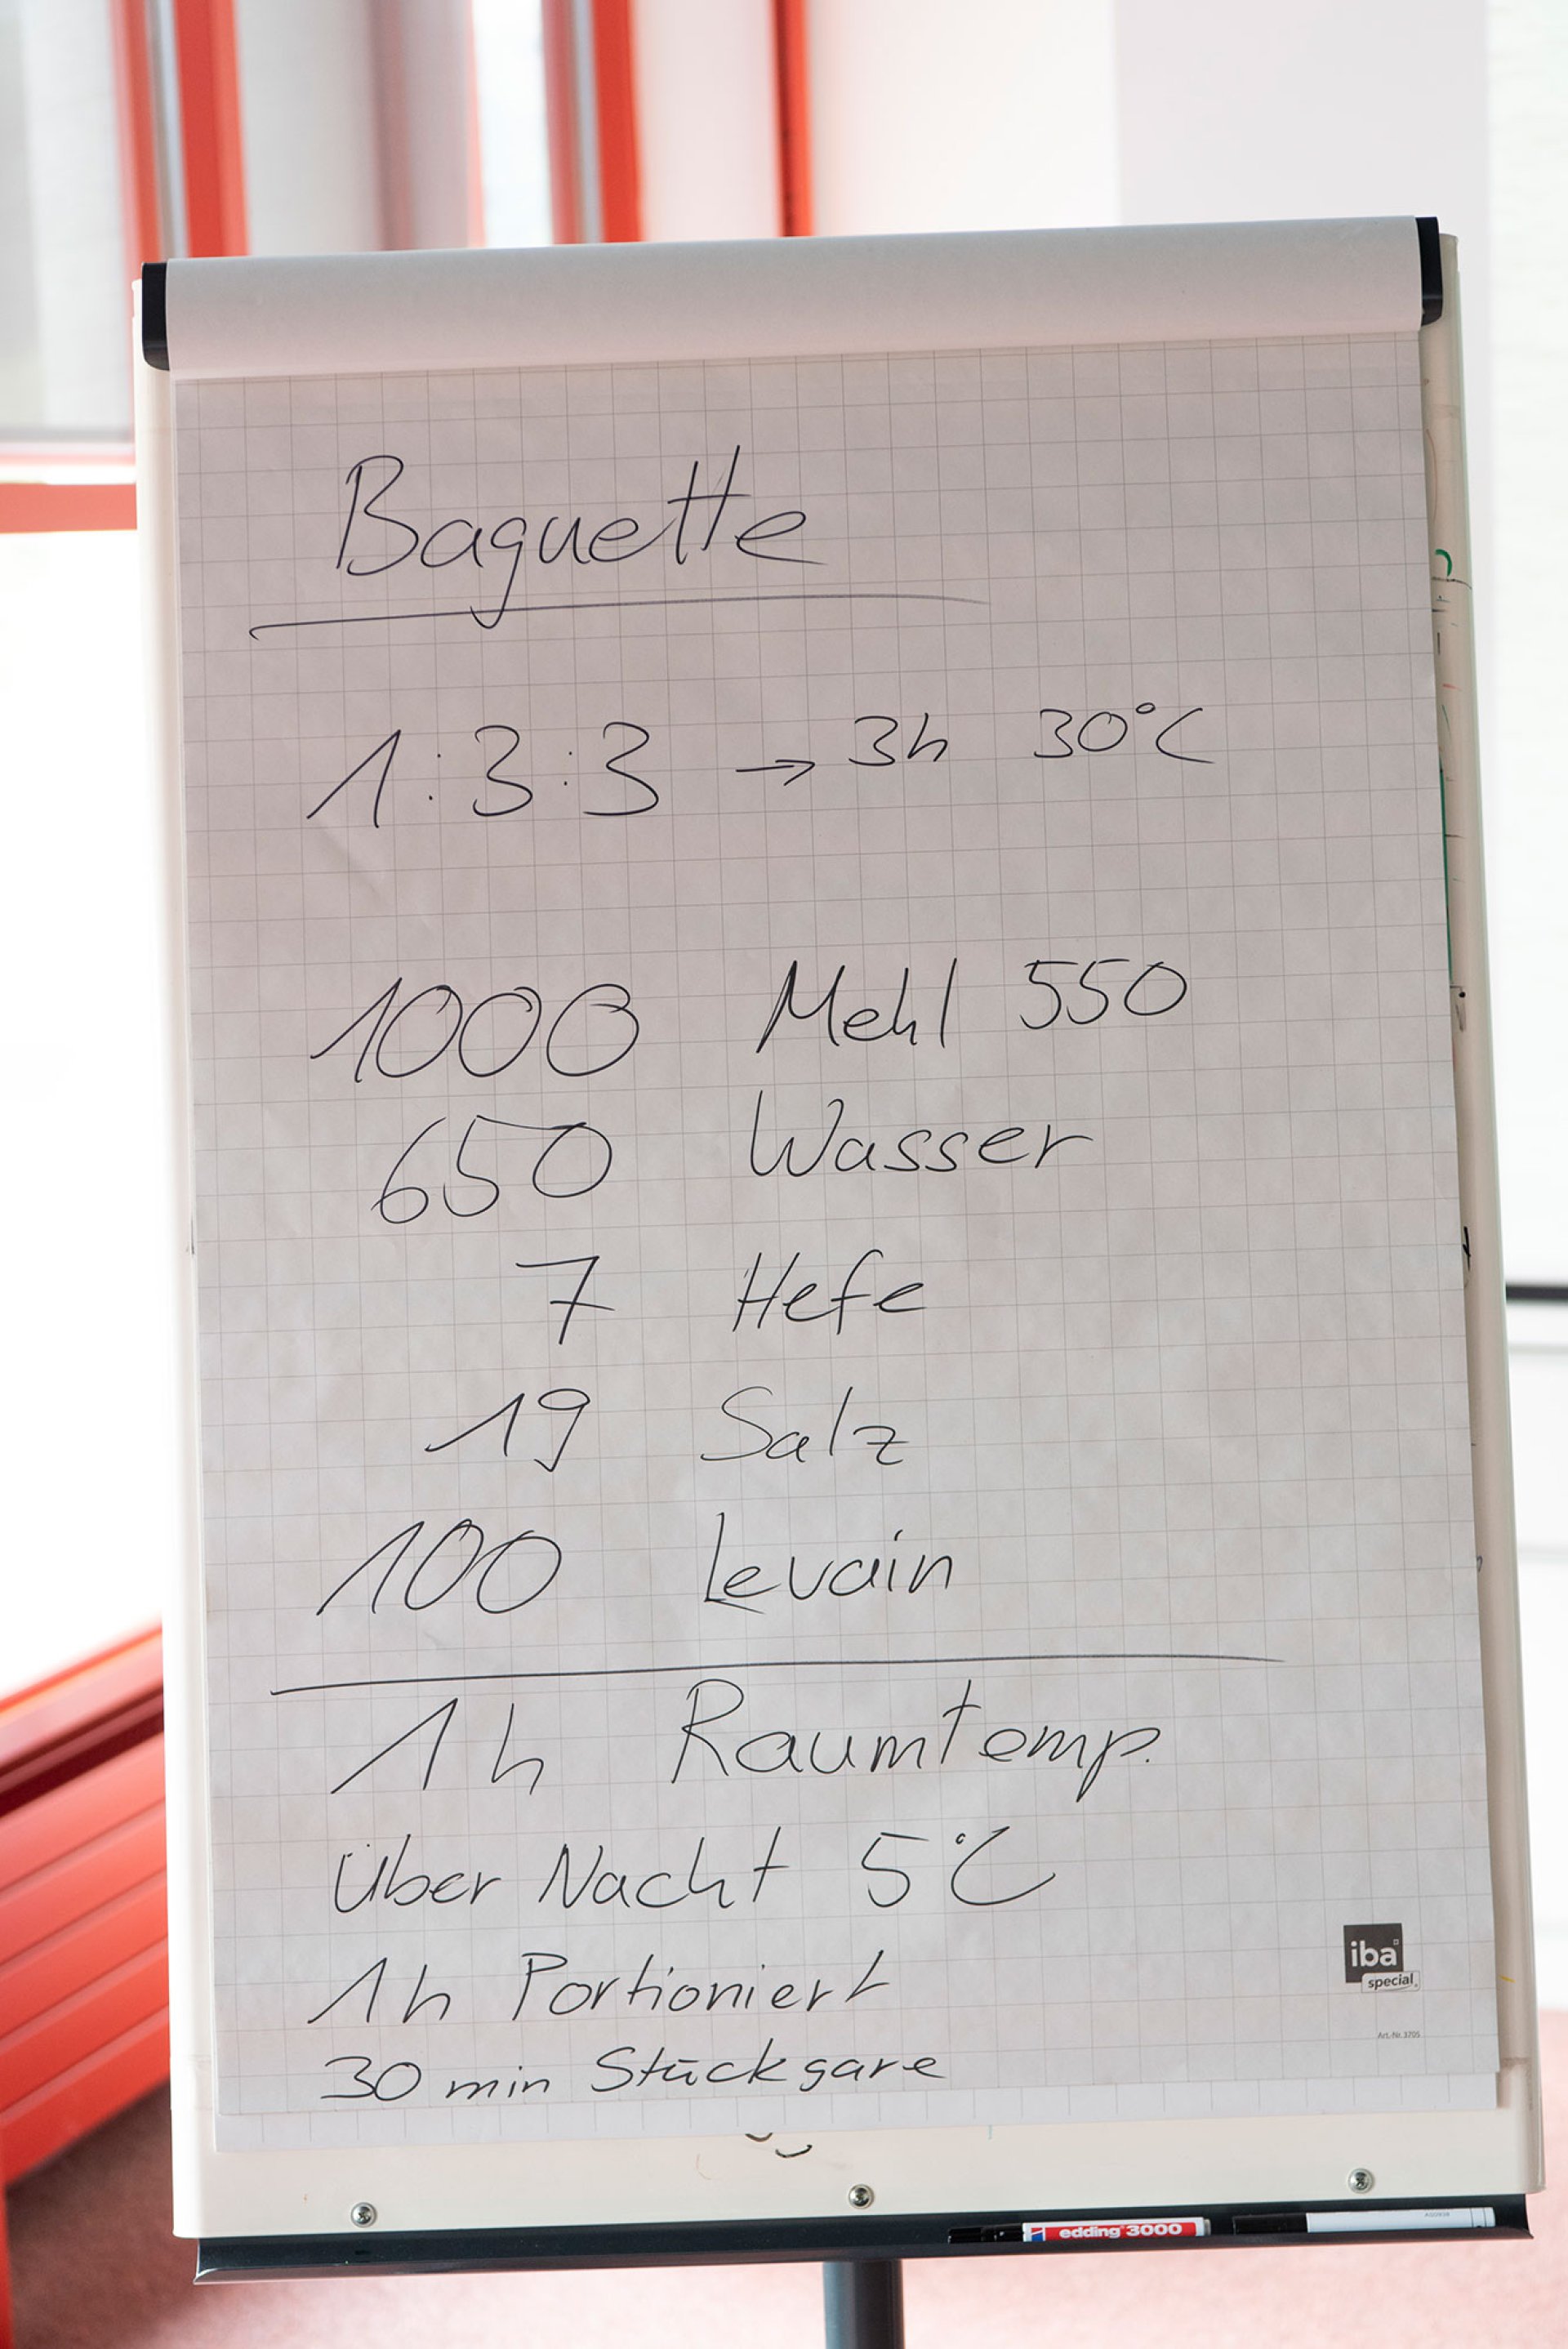 Baguette
1:3:3 → 3h 30°C
1000 Mehl 550
650 Wasser
7 Hefe
19 Salz
100 Levain
1h Raumtemp.
Über Nacht 5°C
1h Portioniert
30 min Stückgare
iba
special
Art.-Nr. 3705
edding 3000